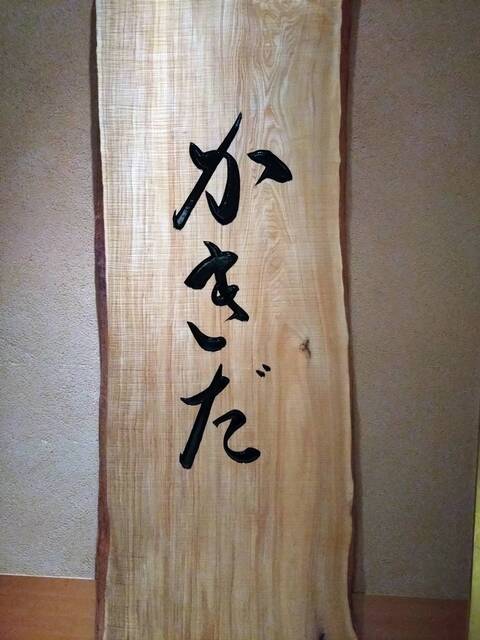 かきだ